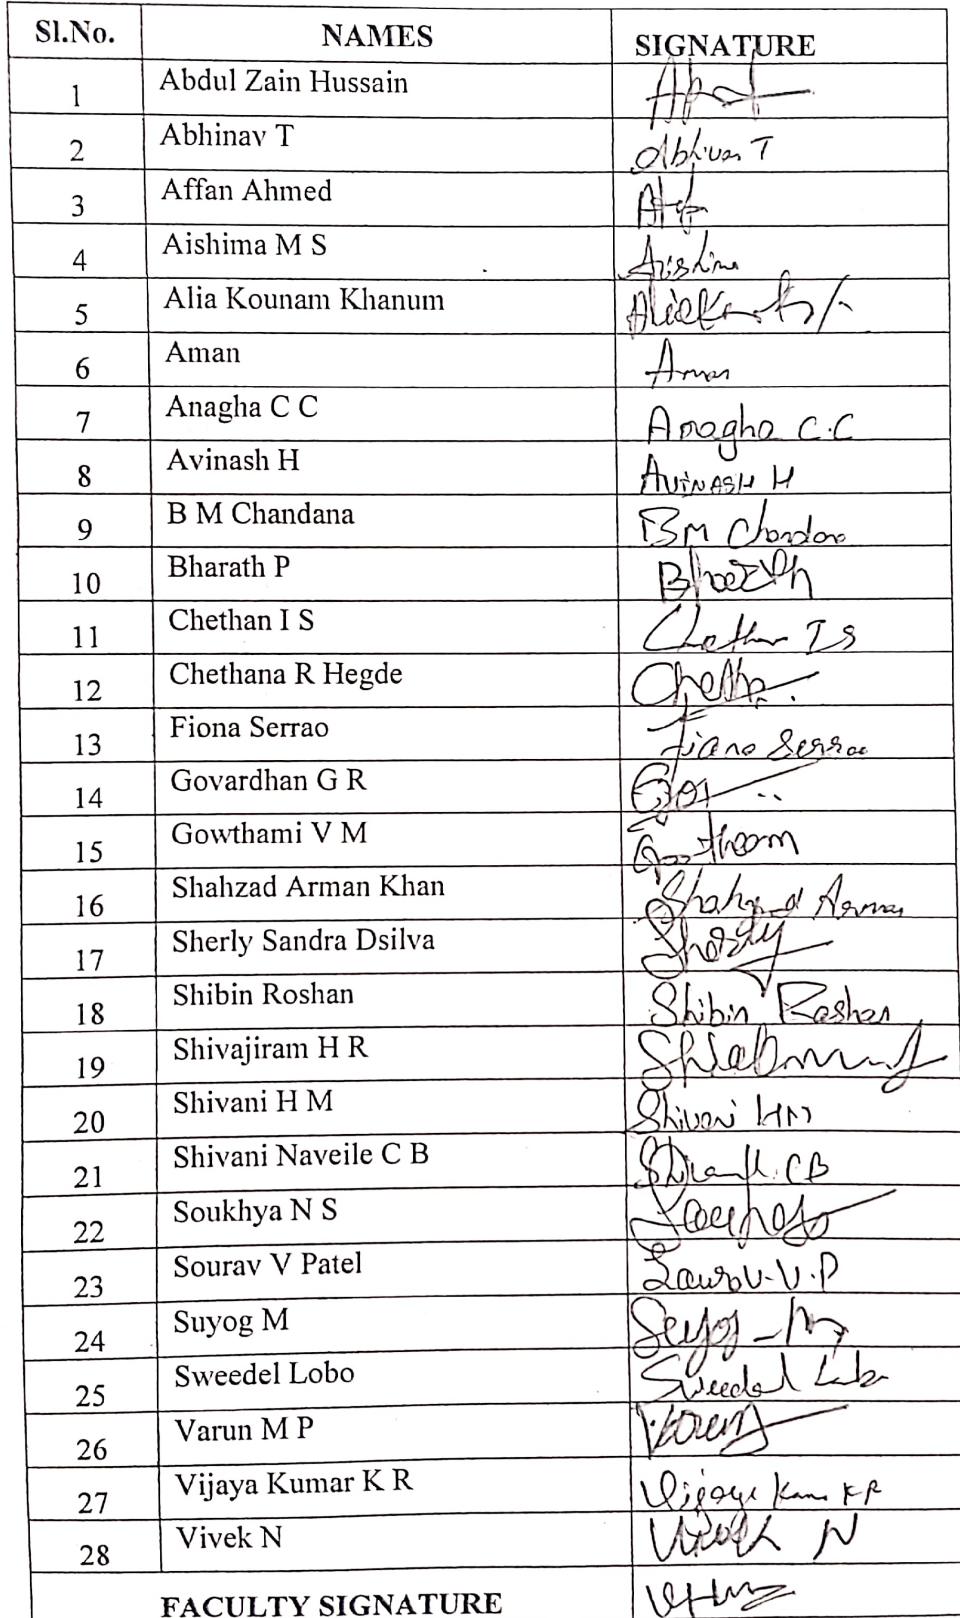 Sl.No. NAMES SIGNATURE
1 Abdul Zain Hussain
2 Abhinav T Abhinav T
3 Affan Ahmed
4 Aishima M S Aishima
5 Alia Kounam Khanum
6 Aman Aman
7 Anagha C C Anagha C.C
8 Avinash H AVINASH H
9 B M Chandana BM Chandana
10 Bharath P Bharath
11 Chethan I S Chethan I S
12 Chethana R Hegde
13 Fiona Serrao Fiona Serrao
14 Govardhan G R
15 Gowthami V M
16 Shahzad Arman Khan Shahzad Arman
17 Sherly Sandra Dsilva Sherly
18 Shibin Roshan Shibin Roshan
19 Shivajiram H R
20 Shivani H M Shivani HM
21 Shivani Naveile C B
22 Soukhya N S
23 Sourav V Patel Sourav.V.P
24 Suyog M Suyog M
25 Sweedel Lobo Sweedel Lobo
26 Varun M P Varun
27 Vijaya Kumar K R Vijaya Kumar KR
28 Vivek N Vivek N
FACULTY SIGNATURE